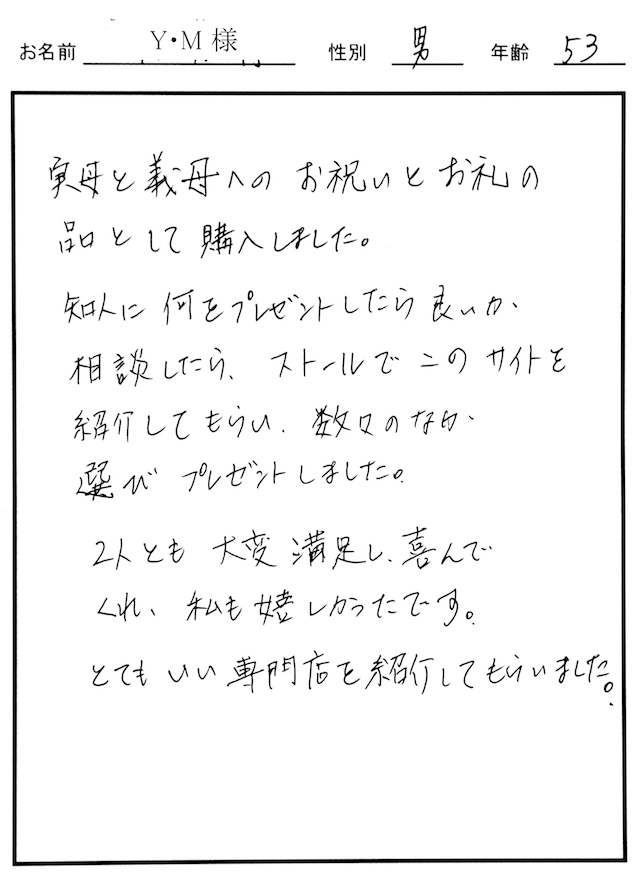 お名前 Y・M 様 性別 男 年齢 53
実母と義母への お祝いとお礼の
品として購入しました。
知人に何をプレゼントしたら良いか、
相談したら、ストールでこのサイトを
紹介してもらい、数々のなか、
選び プレゼントしました。
2人とも 大変満足し、喜んで
くれ、私も嬉しかったです。
とてもいい専門店を紹介してもらいました。